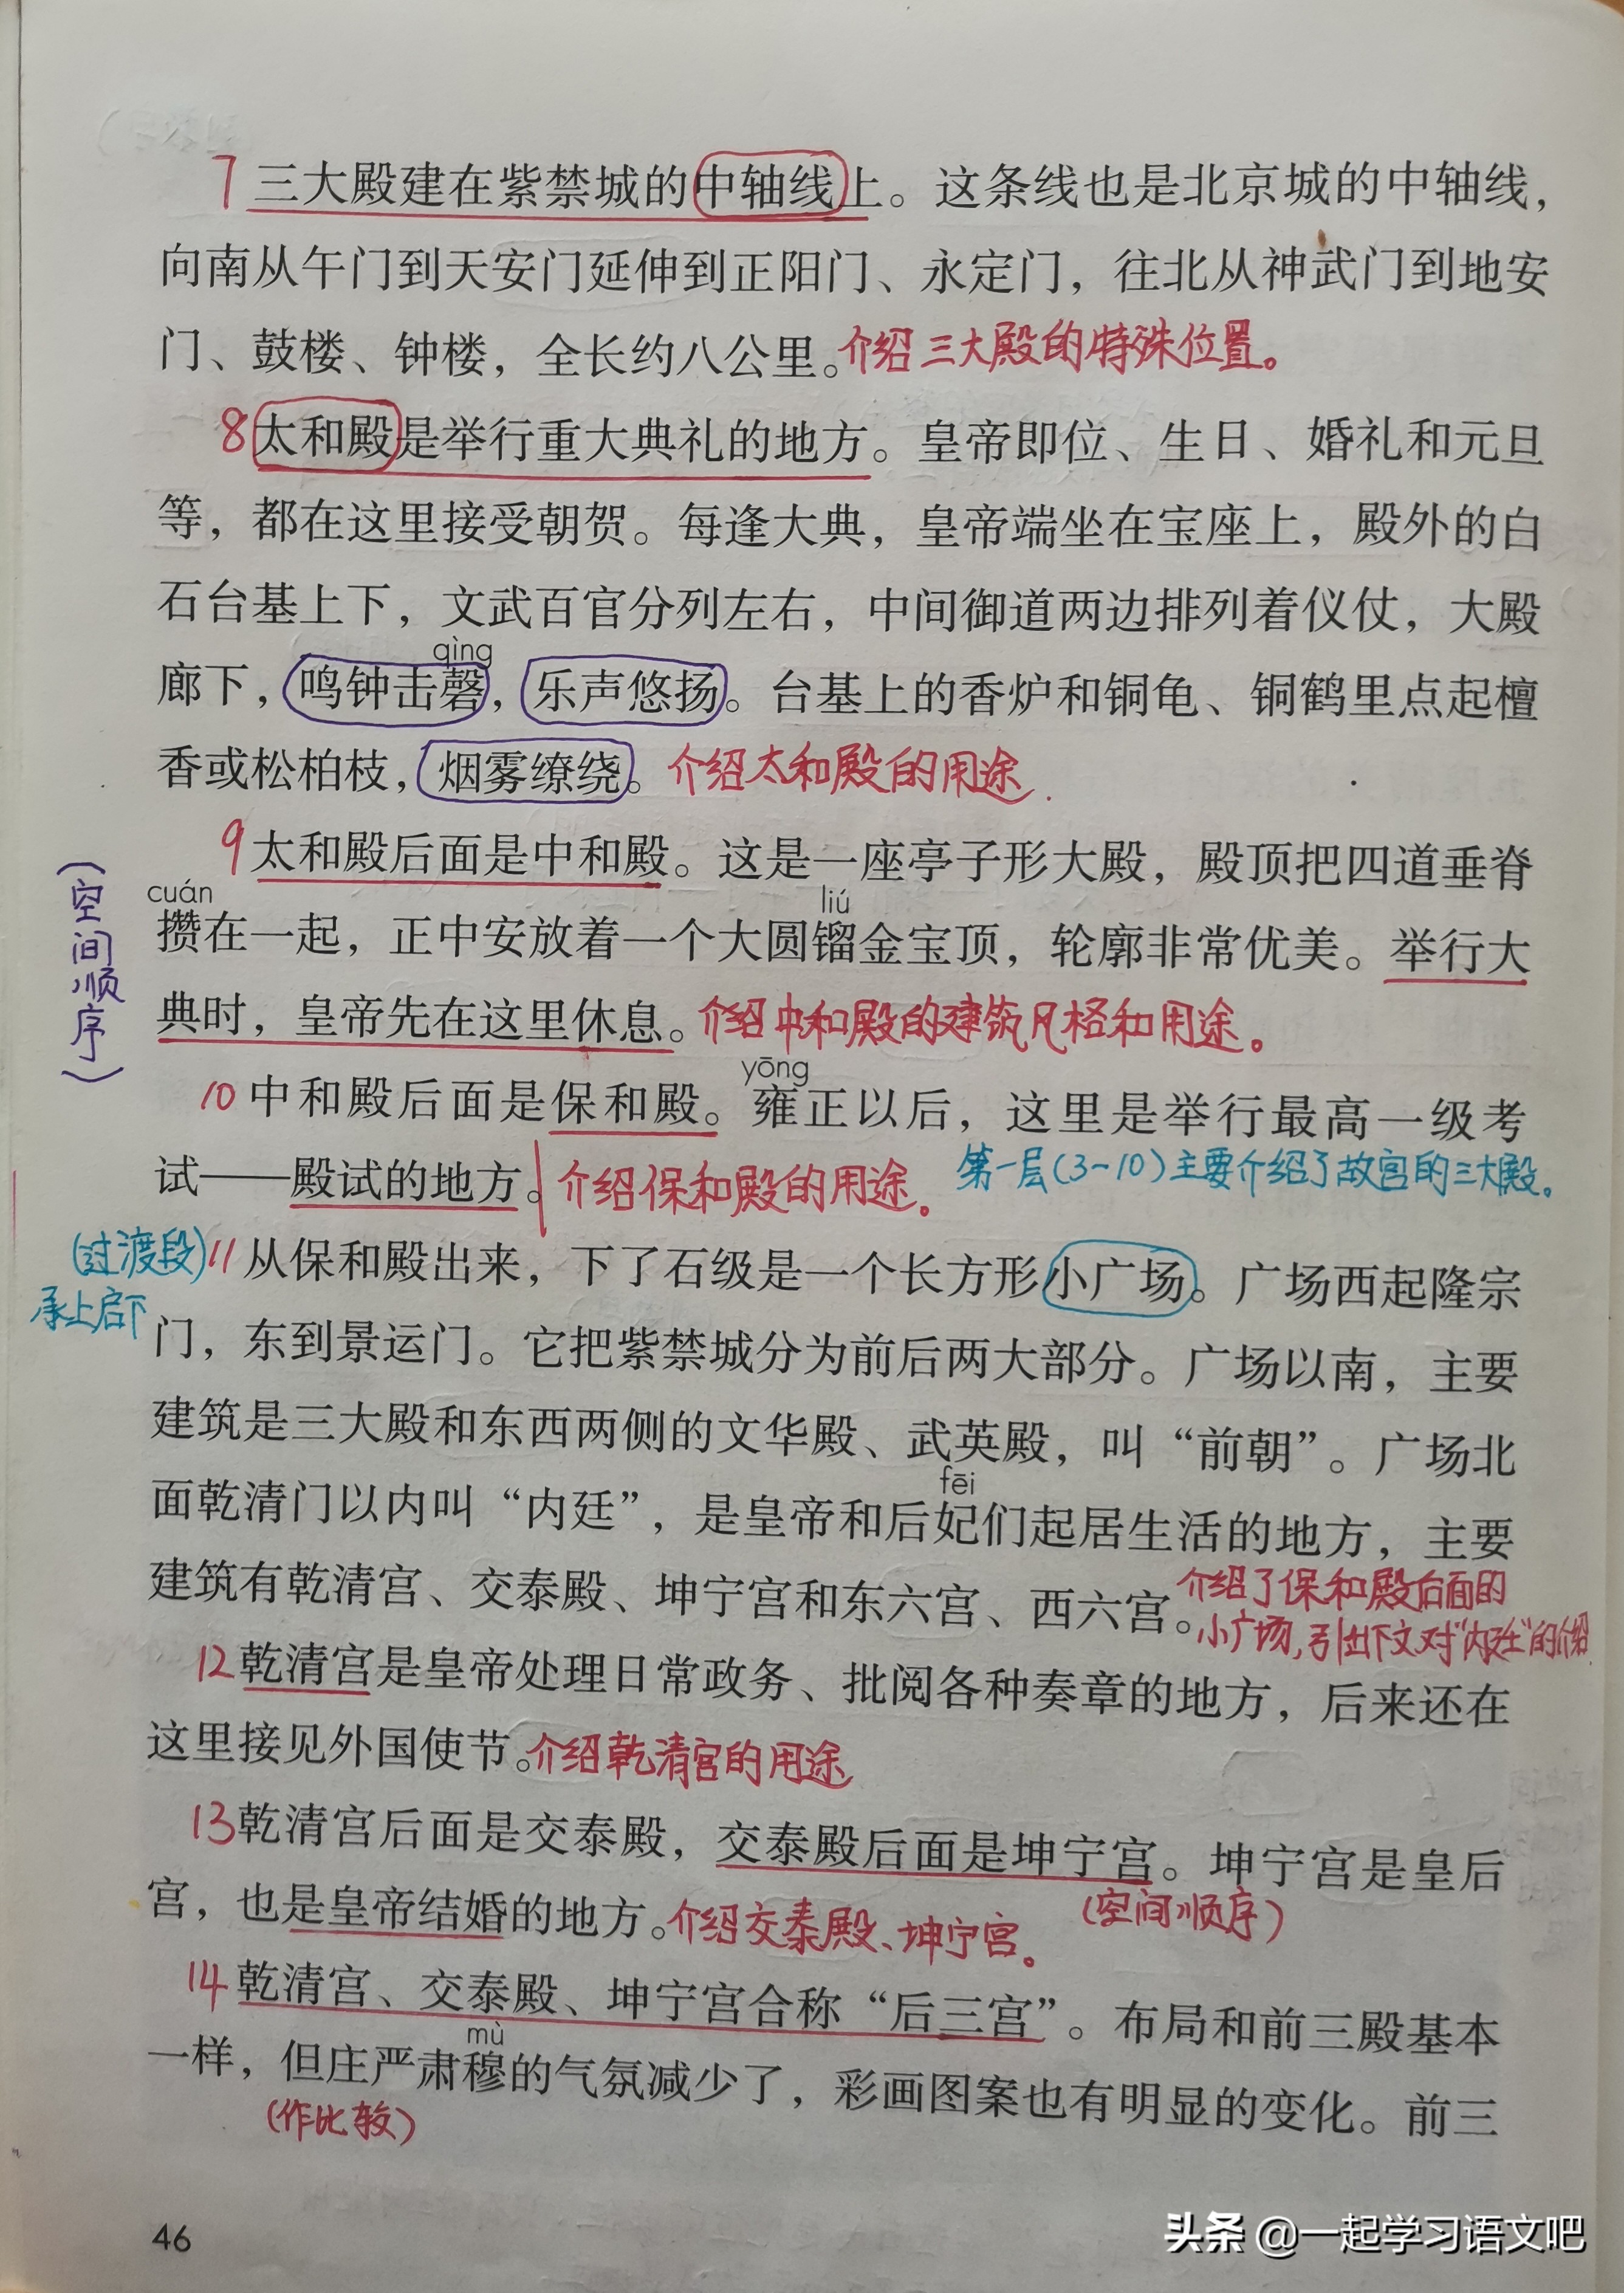 7 三大殿建在紫禁城的中轴线上。这条线也是北京城的中轴线，
向南从午门到天安门延伸到正阳门、永定门，往北从神武门到地安
门、鼓楼、钟楼，全长约八公里。介绍三大殿的特殊位置。
8 太和殿是举行重大典礼的地方。皇帝即位、生日、婚礼和元旦
等，都在这里接受朝贺。每逢大典，皇帝端坐在宝座上，殿外的白
石台基上下，文武百官分列左右，中间御道两边排列着仪仗，大殿
qìng
廊下，鸣钟击磬，乐声悠扬。台基上的香炉和铜龟、铜鹤里点起檀
香或松柏枝，烟雾缭绕。介绍太和殿的用途.
（空间顺序）
9 太和殿后面是中和殿。这是一座亭子形大殿，殿顶把四道垂脊
cuán liú
攒在一起，正中安放着一个大圆镏金宝顶，轮廓非常优美。举行大
典时，皇帝先在这里休息。介绍中和殿的建筑风格和用途。
yōng
10 中和殿后面是保和殿。雍正以后，这里是举行最高一级考
试——殿试的地方。介绍保和殿的用途。
第一层(3-10)主要介绍了故宫的三大殿。
(过渡段)
承上启下
11 从保和殿出来，下了石级是一个长方形小广场。广场西起隆宗
门，东到景运门。它把紫禁城分为前后两大部分。广场以南，主要
建筑是三大殿和东西两侧的文华殿、武英殿，叫“前朝”。广场北
fēi
面乾清门以内叫“内廷”，是皇帝和后妃们起居生活的地方，主要
建筑有乾清宫、交泰殿、坤宁宫和东六宫、西六宫。
介绍了保和殿后面的
小广场,引出下文对“内廷”的介绍
12 乾清宫是皇帝处理日常政务、批阅各种奏章的地方，后来还在
这里接见外国使节。介绍乾清宫的用途
13 乾清宫后面是交泰殿，交泰殿后面是坤宁宫。坤宁宫是皇后
宫，也是皇帝结婚的地方。介绍交泰殿、坤宁宫。
(空间顺序)
14 乾清宫、交泰殿、坤宁宫合称“后三宫”。布局和前三殿基本
mù
一样，但庄严肃穆的气氛减少了，彩画图案也有明显的变化。前三
(作比较)
46
头条 @一起学习语文吧